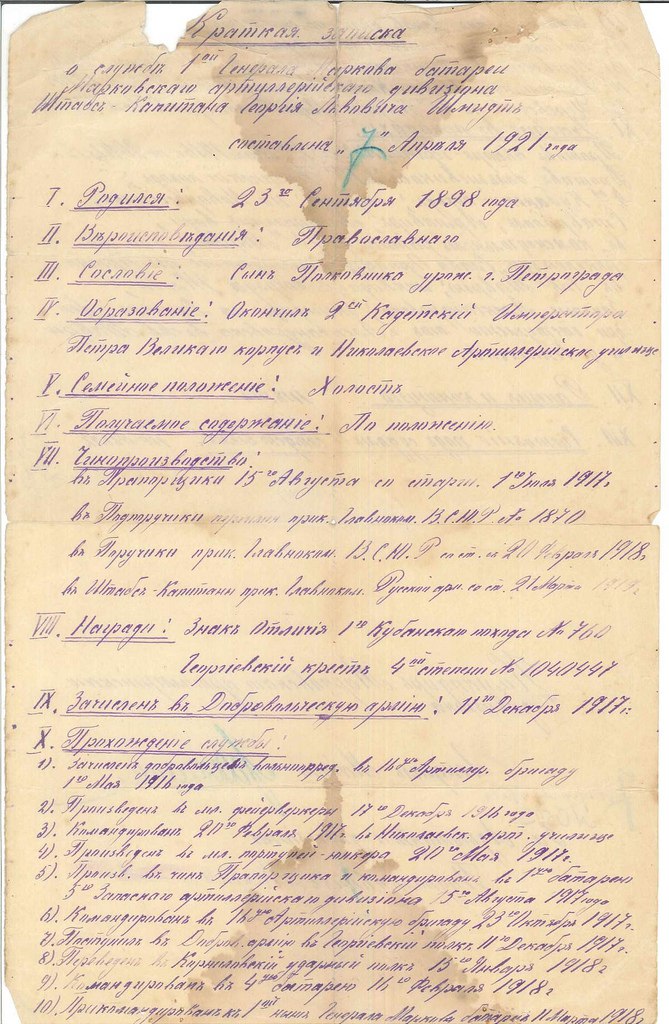 Краткая записка
о службѣ 1ой Генерала Маркова батареи
Марковскаго артиллерійскаго дивизіона
Штабсъ-Капитана Георгія Львовича Шмидтъ
составлена „7“ Апрѣля 1921 года
I. Родился: 23го Сентября 1898 года
II. Вѣроисповѣданія: Православнаго
III. Сословіе: Сынъ Полковника урож. г. Петрограда
IV. Образованіе: Окончилъ 2ой Кадетскій Императора
Петра Великаго корпусъ и Николаевское Артиллерійское училище
V. Семейное положеніе: Холостъ
VI. Получаемое содержаніе: По положенію.
VII. Чинопроизводство:
въ Прапорщики 15го Августа со старш. 1го Іюля 1917г
въ Подпоручики прик. Главноком. В.С.Ю.Р. № 1870
въ Поручики прик. Главноком. В.С.Ю.Р со ст. съ 20 Февраля 1918г
въ Штабсъ-Капитаны прик. Главноком. Русской арм. со ст. 21 Марта
VIII. Награды: Знакъ Отличія 1го Кубанскаго похода № 760
Георгіевскій крестъ 4ой степени № 1040447
IX. Зачисленъ въ Добровольческую армію: 11го Декабря 1917г.
X. Прохожденіе службы:
1). Зачисленъ добровольцемъ вольноопред. въ 16ую Артиллер. бригаду
1го Мая 1916 года
2). Произведенъ въ мл. фейерверкеры 17го Декабря 1916 года
3). Командированъ 20го Февраля 1917г. въ Николаевск. арт. училище
4). Произведенъ въ мл. портупей-юнкера 20го Мая 1917г.
5). Произв. въ чинъ Прапорщика и командированъ въ 1ую батарею
5го Запаснаго артиллерійскаго дивизіона 15го Августа 1917 года
6). Командированъ въ 16ую Артиллерійскую бригаду 23го Октября 1917г.
7). Поступилъ въ Добров. армію въ Георгіевскій полкъ 11го Декабря 1917г.
8). Переведенъ въ Корниловскій ударный полкъ 15го Января 1918г
9). Командированъ въ 4ую батарею 16го Февраля 1918г
10). Прикомандированъ къ 1ой нынѣ Генерала Маркова батареѣ 11 Марта 1918г